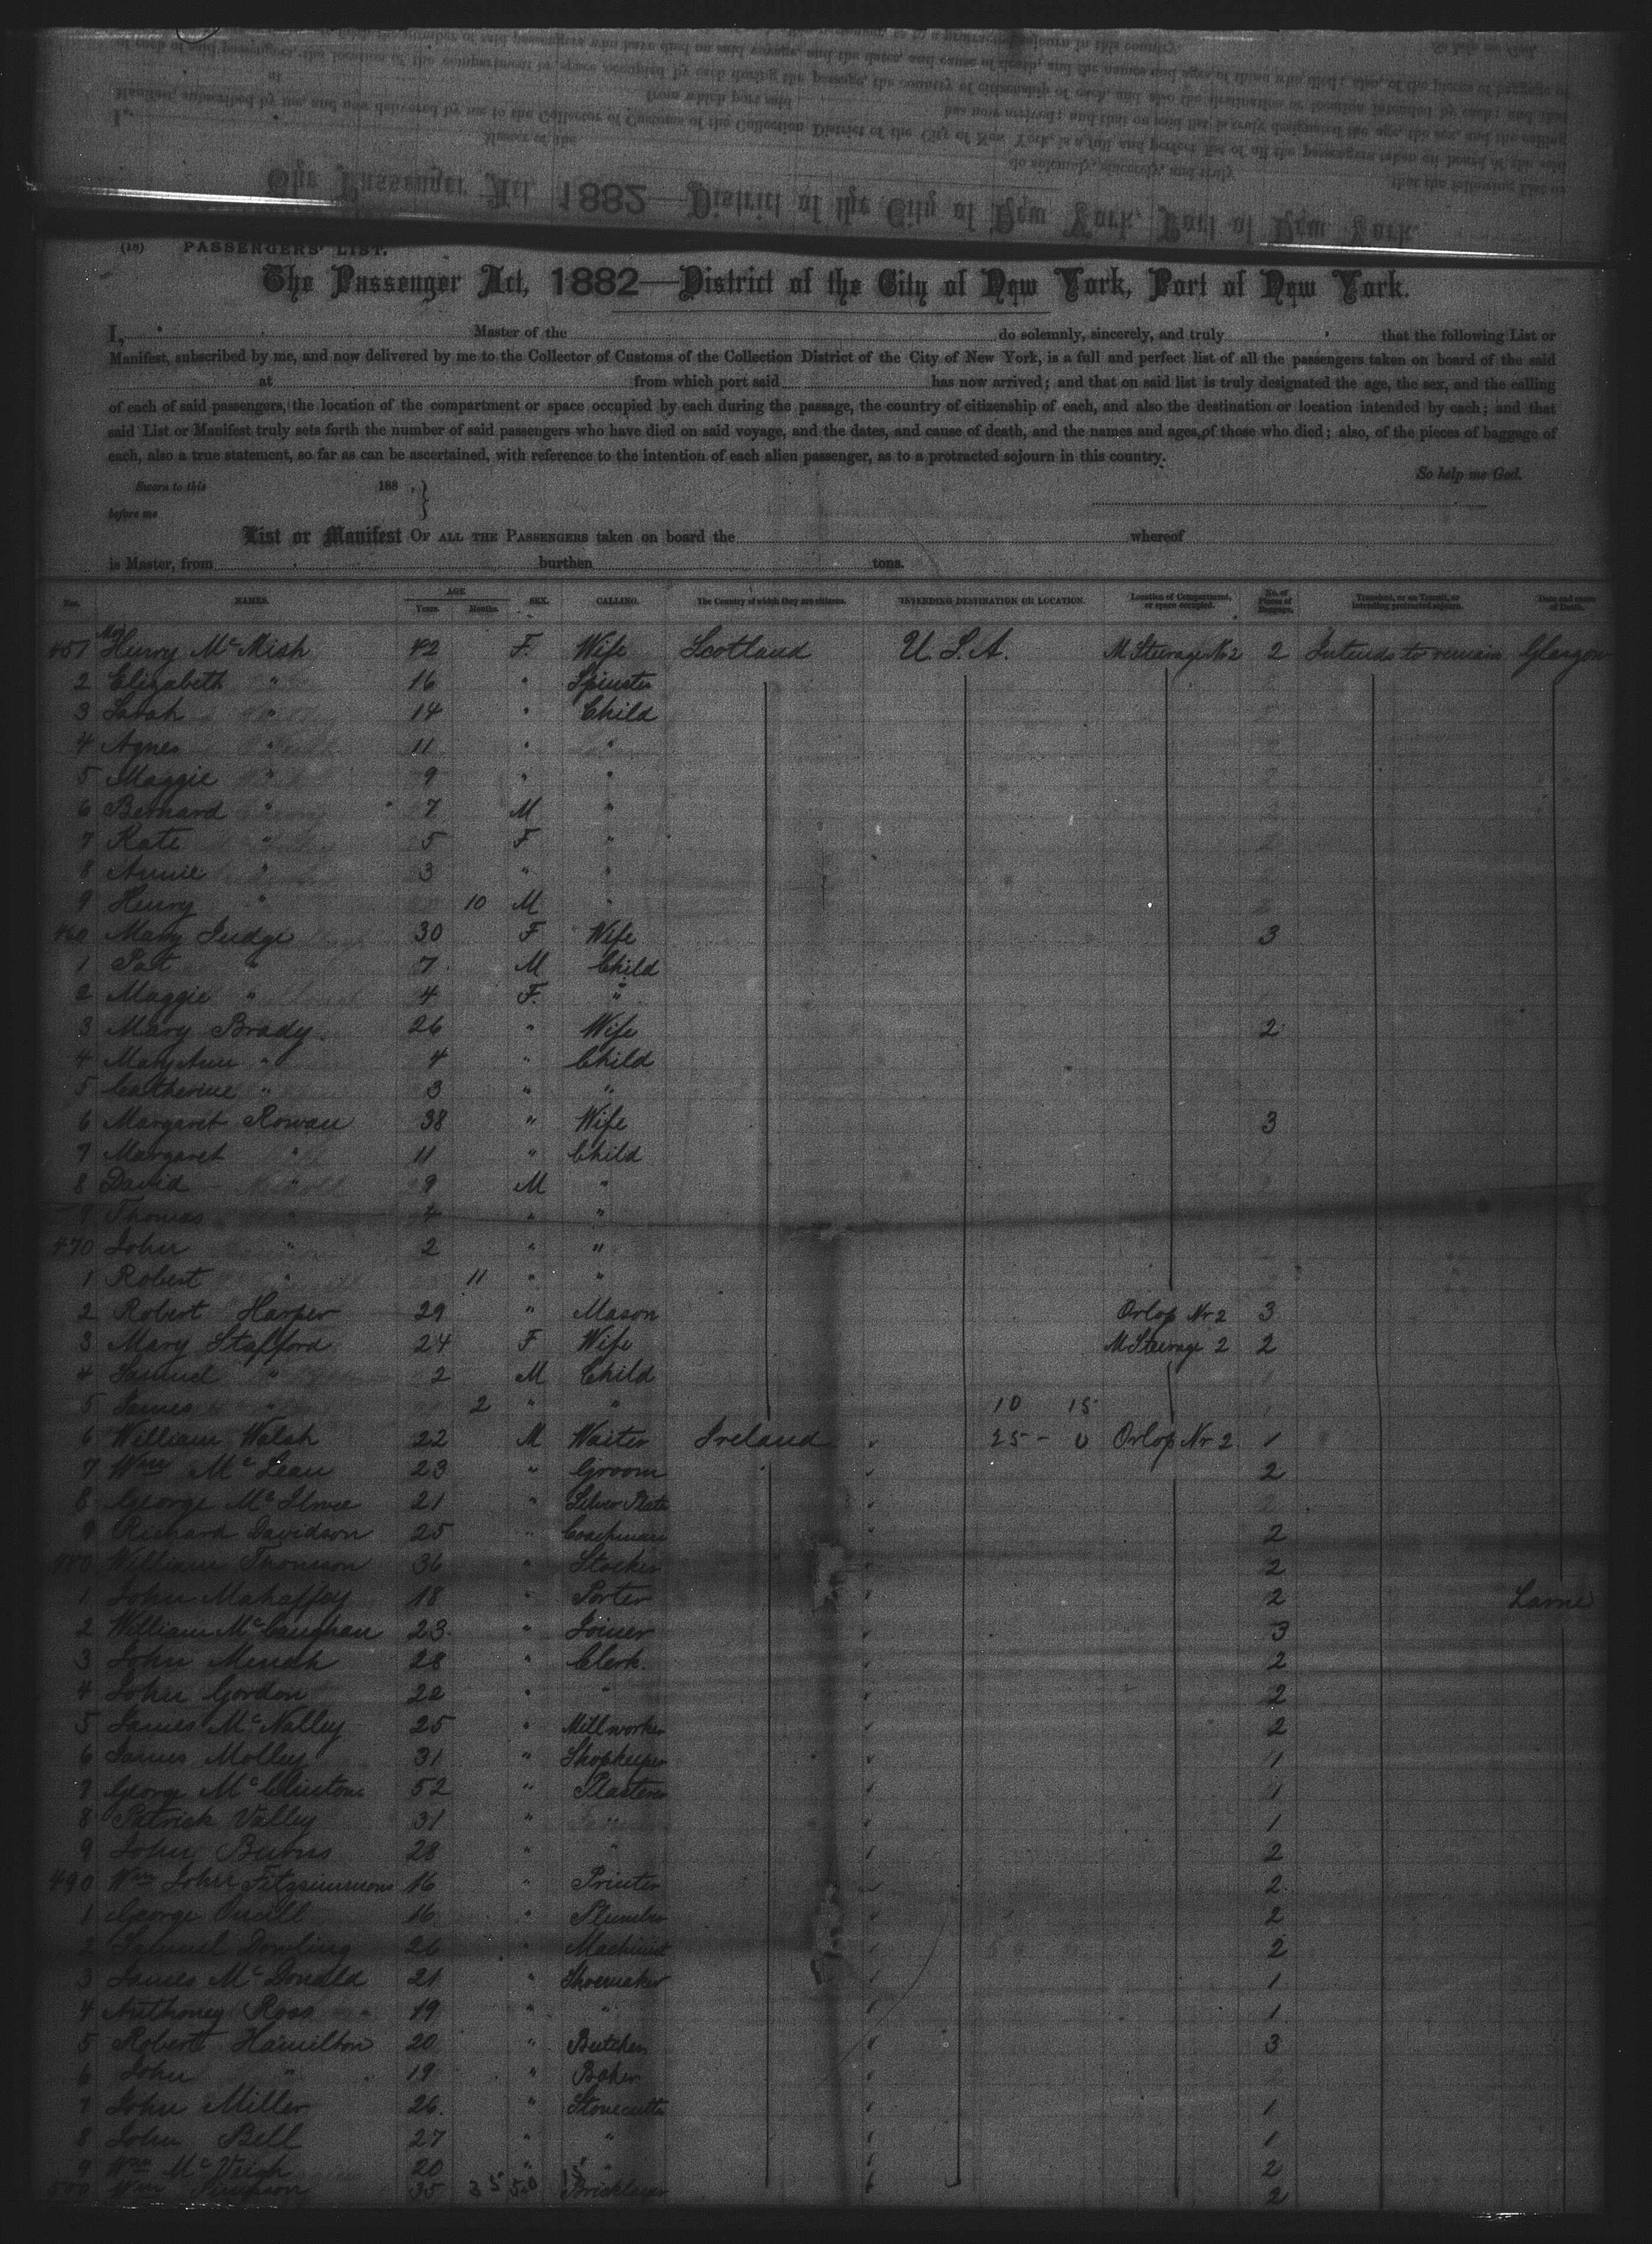 The Passenger Act, 1882—District of the City of New York, Port of New York.
(10) PASSENGERS' LIST.
The Passenger Act, 1882—District of the City of New York, Port of New York.
I, Master of the do solemnly, sincerely, and truly that the following List or
Manifest, subscribed by me, and now delivered by me to the Collector of Customs of the Collection District of the City of New York, is a full and perfect list of all the passengers taken on board of the said
at from which port said has now arrived; and that on said list is truly designated the age, the sex, and the calling
of each of said passengers, the location of the compartment or space occupied by each during the passage, the country of citizenship of each, and also the destination or location intended by each; and that
said List or Manifest truly sets forth the number of said passengers who have died on said voyage, and the dates, and cause of death, and the names and ages of those who died; also, of the pieces of baggage of
each, also a true statement, so far as can be ascertained, with reference to the intention of each alien passenger, as to a protracted sojourn in this country.
So help me God.
Sworn to this 188 , }
before me
List or Manifest OF ALL THE PASSENGERS taken on board the whereof
is Master, from burthen tons.
Nos. NAMES. AGE Years. Months. SEX. CALLING. The Country of which they are citizens. INTENDING DESTINATION OR LOCATION. Location of Compartment, or space occupied. No. of Pieces of Baggage. Transient, or in Transit, or intending protracted sojourn. Date and cause of Death.
451 Mrs Henry McMish 42 F. Wife Scotland U.S.A. M Steerage No 2 2 Intends to remain Glasgow
2 Elizabeth " 16 " Spinster
3 Sarah " 14 " Child
4 Agnes " 11 " "
5 Maggie " 9 " "
6 Bernard " 7 M "
7 Kate " 5 F "
8 Annie " 3 " "
9 Henry " 10 M "
460 Mary Judge 30 F Wife 3
1 Pat " 7 M Child
2 Maggie " 4 F. "
3 Mary Brady 26 " Wife 2
4 Mary Ann " 4 " Child
5 Catherine " 3 " "
6 Margaret Rowan 38 " Wife 3
7 Margaret " 11 " Child
8 David " 9 M "
9 Thomas " 4 " "
470 John " 2 " "
1 Robert " 11 " "
2 Robert Harper 29 " Mason Orlop Nr 2 3
3 Mary Stafford 24 F Wife M Steerage 2 2
4 Samuel " 2 M Child
5 James " 2 " " 10 15
6 William Walsh 22 M Waiter Ireland 25 - 0 Orlop Nr 2 1
7 Wm McLean 23 " Groom 2
8 George 21 " Silver Plate
9 Richard Davidson 25 " Coachman 2
480 William Thomson 36 " Stoker 2
1 John Mahaffey 18 " Porter 2 Larne
2 William McCaughan 23 " Joiner 3
3 John 28 " Clerk 2
4 John Gordon 22 " " 2
5 James McNalley 25 " Millworker 2
6 James Molley 31 " Shopkeeper 1
7 George McClintone 52 " Plasterer 1
8 Patrick Valley 31 " " 1
9 John Burns 28 " " 2
490 Wm John Fitzsimmons 16 " Printer 2
1 George Oneill 16 " Plumber 2
2 Samuel Dowling 26 " Machinist 2
3 James McDonald 21 " Shoemaker 1
4 Anthoney Ross 19 " " 1
5 Robert Hamilton 20 " Butcher 3
6 John " 19 " Baker
7 John Miller 26 " Stonecutter 1
8 John Bell 27 " " 1
9 Wm McVeigh 20 " " 2
500 Wm Simpson 35 Bricklayer 2